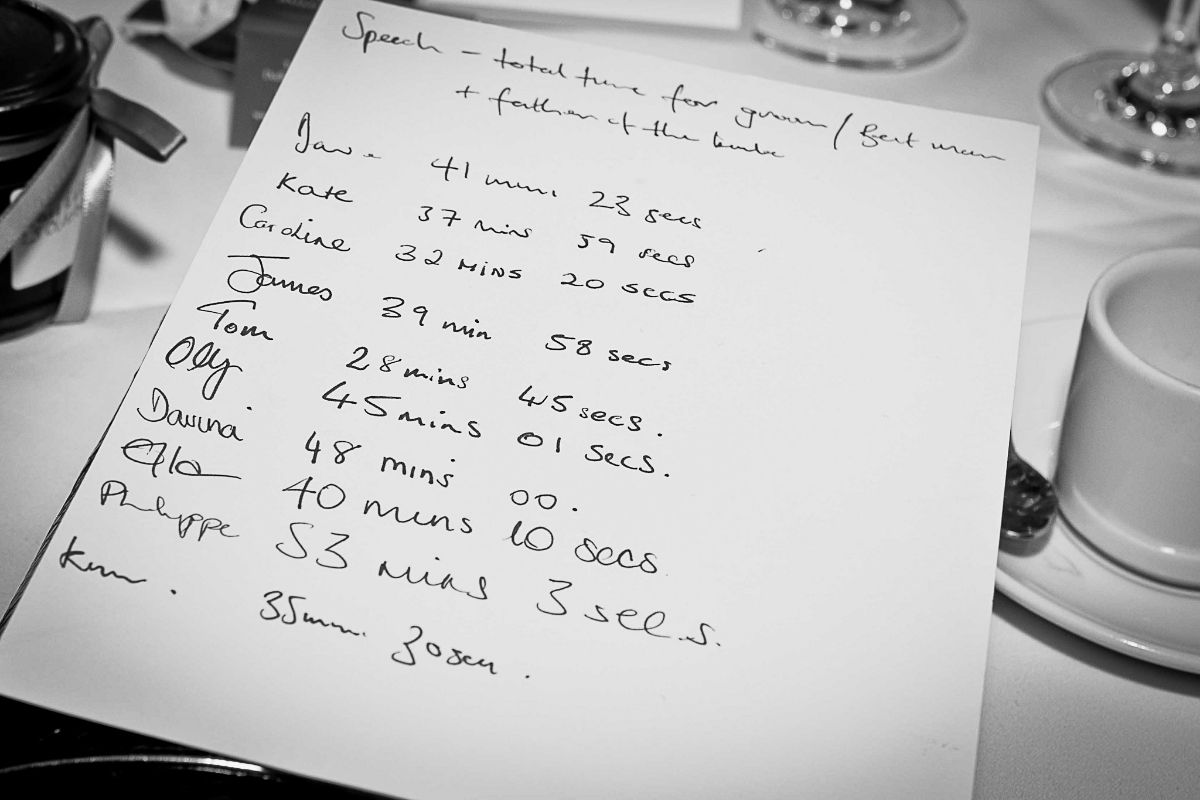 Speech - total time for groom / Best man
+ father of the bride
41 mins 23 secs
Kate 37 mins 59 secs
Caroline 32 MINS 20 secs
James 39 min 58 secs
Tom 28 mins 45 secs.
Olly 45 mins 01 secs.
Davina 48 mins 00.
40 mins 10 secs
Philyppe 53 mins 3 secs.
35 min. 30 sec.